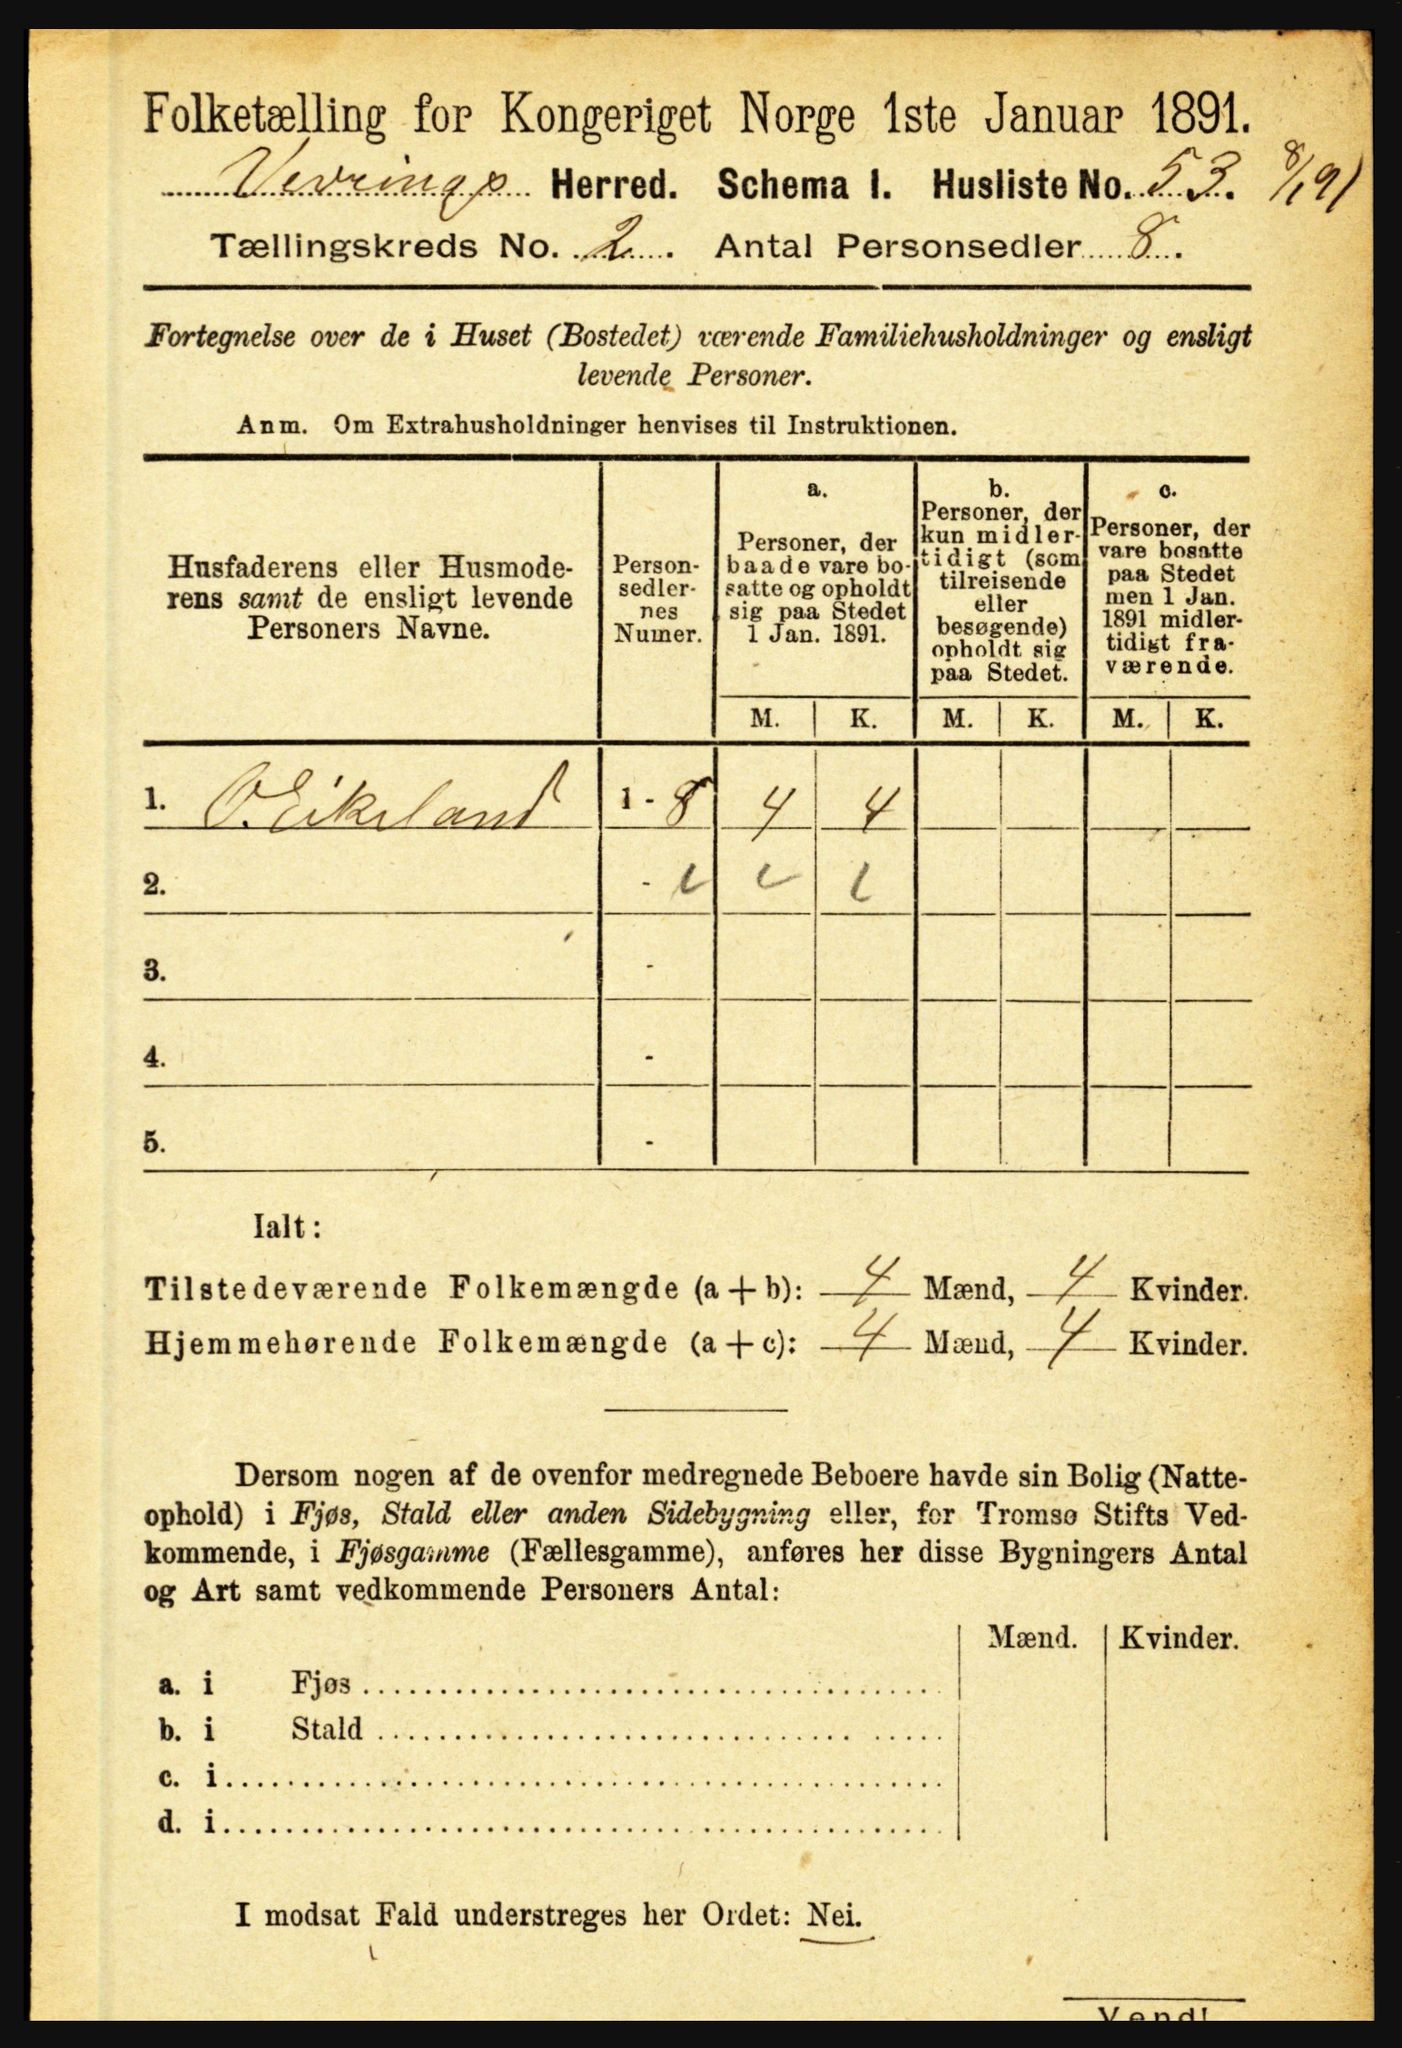 Folketælling for Kongeriget Norge 1ste Januar 1891.
Vevrings Herred. Schema I. Husliste No. 53. 8/1 91
Tællingskreds No. 2. Antal Personsedler 8.
Fortegnelse over de i Huset (Bostedet) værende Familiehusholdninger og ensligt
levende Personer.
Anm. Om Extrahusholdninger henvises til Instruktionen.
Husfaderens eller Husmode-
rens samt de ensligt levende
Personers Navne.
Person-
sedler-
nes
Numer.
a.
Personer, der
baade vare bo-
satte og opholdt
sig paa Stedet
1 Jan. 1891.
b.
Personer, der
kun midler-
tidigt (som
tilreisende
eller
besøgende)
opholdt sig
paa Stedet.
c.
Personer, der
vare bosatte
paa Stedet
men 1 Jan.
1891 midler-
tidigt fra-
værende.
M. K. M. K. M. K.
1. O. Eikeland 1 - 8 4 4
2. -
3. -
4. -
5. -
Ialt:
Tilstedeværende Folkemængde (a + b): 4 Mænd, 4 Kvinder.
Hjemmehørende Folkemængde (a + c): 4 Mænd, 4 Kvinder.
Dersom nogen af de ovenfor medregnede Beboere havde sin Bolig (Natte-
ophold) i Fjøs, Stald eller anden Sidebygning eller, for Tromsø Stifts Ved-
kommende, i Fjøsgamme (Fællesgamme), anføres her disse Bygningers Antal
og Art samt vedkommende Personers Antal:
Mænd. Kvinder.
a. i Fjøs
b. i Stald
c. i
d. i
I modsat Fald understreges her Ordet: Nei.
Vend!